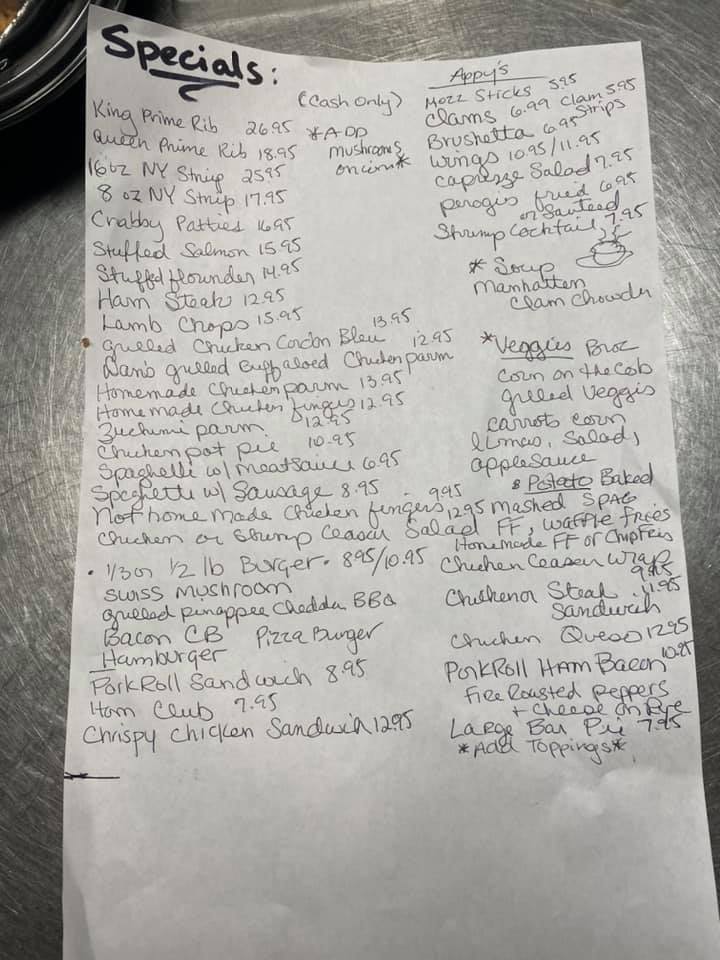 Specials:
(Cash Only)
King Prime Rib 26.95
Queen Prime Rib 18.95
*ADD
mushrooms
onion*
16oz NY Strip 25.95
8 oz NY Strip 17.95
Crabby Patties 16.95
Stuffed Salmon 15.95
Stuffed flounder 14.95
Ham Steak 12.95
Lamb Chops 15.95
grilled Chicken Cordon Bleu 13.95
grilled Buffaloed Chicken parm 12.95
Homemade Chicken parm 13.95
Home made Chicken fingers 12.95
Zuchinni parm 12.95
Chicken pot pie 10.95
Spaghetti w/ meatsauce 6.95
Spaghetti w/ Sausage 8.95
Not home made Chicken fingers 9.95
Chicken or Shrimp Ceasar Salad 12.95
• 1/3 or 1/2 lb Burger • 8.95/10.95
Swiss mushroom
grilled pinappee Cheddar BBQ
Bacon CB Pizza Burger
Hamburger
Pork Roll Sandwich 8.95
Ham Club 7.95
Chrispy Chicken Sandwich 12.95
Appy's
Mozz Sticks 5.95
Clams 6.99 Clam Strips 5.95
Brushetta 6.95
wings 10.95/11.95
caprezze Salad 7.95
perogis fried 6.95
or Sauteed
Shrimp Cocktail 7.95
* Soup
Manhatten
Clam Chowder
*Veggies Broc
Corn on the Cob
grilled Veggis
carrots corn
limas, Salad,
applesauce
* Potato Baked
mashed SPAG
FF, waffle fries
Homemade FF or Chip Fries
Chicken Ceasar Wrap
9.95
Chicken or Steak 11.95
Sandwich
Chicken Queso 12.95
Pork Roll Ham Bacon 10.95
Fire Roasted peppers
+ Cheese on Rye
Large Bar Pie 7.95
*Add Toppings*